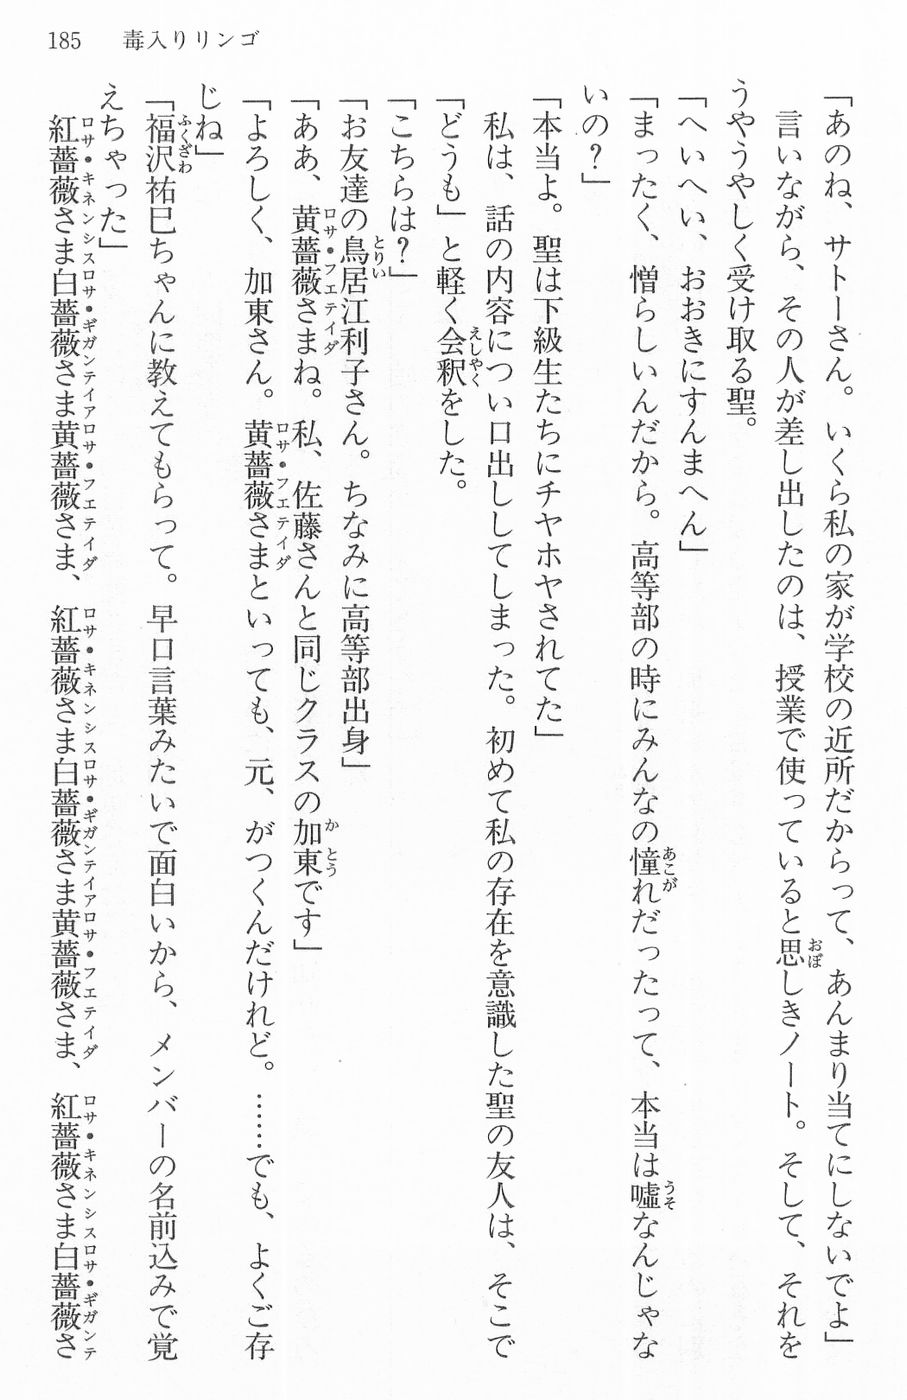 185　毒入りリンゴ
「あのね、サトーさん。いくら私の家が学校の近所だからって、あんまり当てにしないでよ」
言いながら、その人が差し出したのは、授業で使っていると思しきノート。そして、それを
うやうやしく受け取る聖。
「へいへい、おおきにすんまへん」
「まったく、憎らしいんだから。高等部の時にみんなの憧れだったって、本当は嘘なんじゃな
いの？」
「本当よ。聖は下級生たちにチヤホヤされてた」
私は、話の内容につい口出ししてしまった。初めて私の存在を意識した聖の友人は、そこで
「どうも」と軽く会釈をした。
「こちらは？」
「お友達の鳥居江利子さん。ちなみに高等部出身」
「ああ、黄薔薇さまね。私、佐藤さんと同じクラスの加東です」
「よろしく、加東さん。黄薔薇さまといっても、元、がつくんだけれど。……でも、よくご存
じね」
「福沢祐巳ちゃんに教えてもらって。早口言葉みたいで面白いから、メンバーの名前込みで覚
えちゃった」
紅薔薇さま白薔薇さま黄薔薇さま、紅薔薇さま白薔薇さま黄薔薇さま、紅薔薇さま白薔薇さ